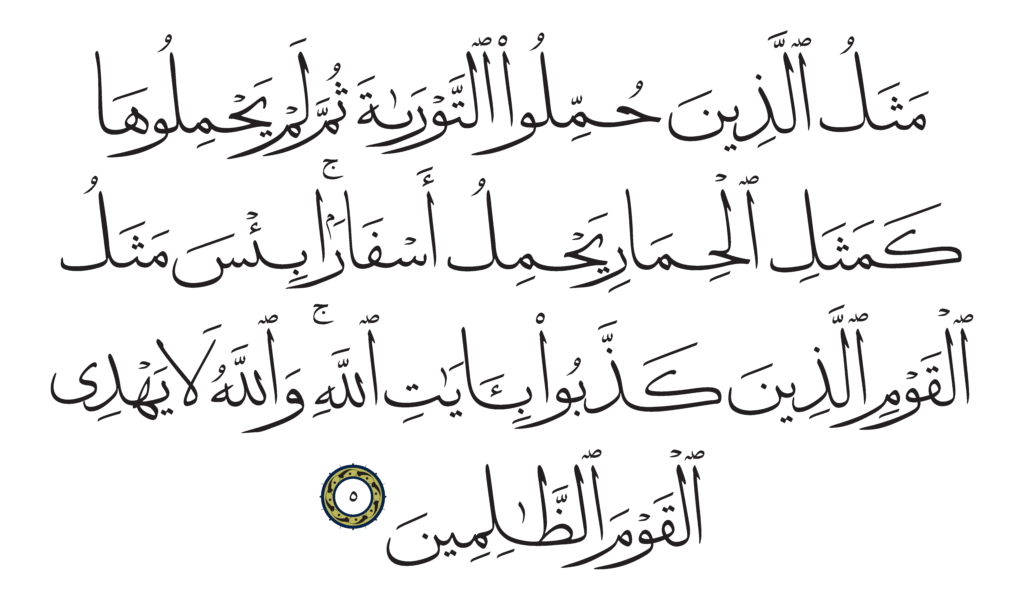 مَثَلُ ٱلَّذِينَ حُمِّلُوا۟ ٱلتَّوْرَىٰةَ ثُمَّ لَمْ يَحْمِلُوهَا
كَمَثَلِ ٱلْحِمَارِ يَحْمِلُ أَسْفَارَۢا ۚ بِئْسَ مَثَلُ
ٱلْقَوْمِ ٱلَّذِينَ كَذَّبُوا۟ بِـَٔايَـٰتِ ٱللَّهِ ۚ وَٱللَّهُ لَا يَهْدِى
ٱلْقَوْمَ ٱلظَّـٰلِمِينَ ٥